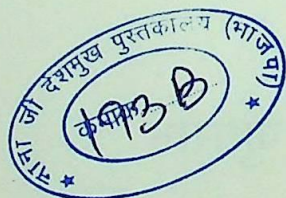 नाना जी देशमुख पुस्तकालय (भाजपा)
193B